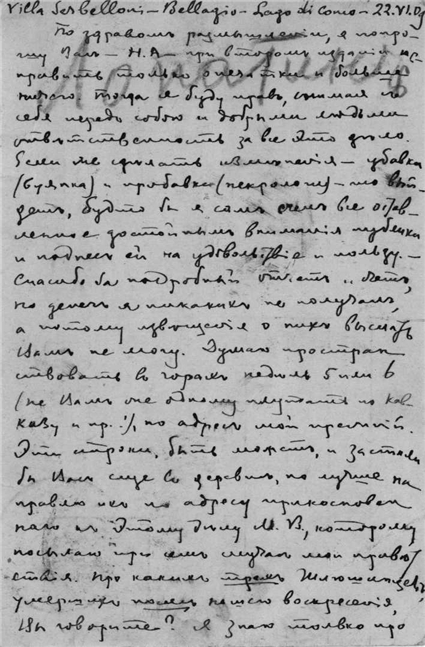 Villa Serbelloni – Bellagio – Lago di Como – 22.VI.09
По здравомъ размышленіи, я попро-
шу Васъ – Н.А – при второмъ изданіи ис-
править только опечатки и больше
ничего. Тогда я буду правъ, снимая съ
себя передъ собою и добрыми людьми
отвѣтственность за все это дѣло.
Если же сдѣлать измѣненія – убавки
и прибавки (некрологи) – то вый-
детъ, будто бы я самъ счелъ все остав-
ленное достойнымъ вниманія публики
и поднесъ ей на удовольствіе и пользу. –
Спасибо за подробный отчетъ
но денегъ я никакихъ не получалъ,
а потому извѣщенія о нихъ выслать
Вамъ не могу. Думаю простран-
ствовать въ горахъ недѣль 5 или 6
(не Вамъ же одному плутать по Кав-
казу и пр.!), но адресъ мой прежній.
Эти строки, быть можетъ, и застали
бы Васъ еще въ деревнѣ, но лучше на-
правлю ихъ по адресу прикосновен-
наго къ этому дѣлу М. В, которому
посылаю при семъ случаѣ мои привѣт-
ствія. Про какихъ трехъ
умершихъ послѣ нашего воскресенія,
Вы говорите? Я знаю только про